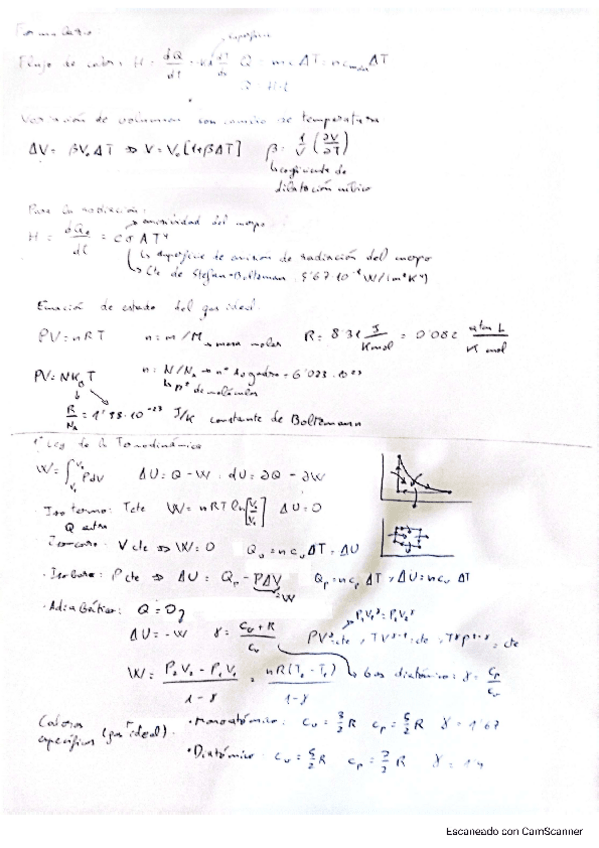 Formulario:
superficie
Flujo de calor: H = dQ/dt = kA dT/dx   Q = mcΔT = n c ΔT
Q = H·t
Variación de volumen con cambio de temperatura
ΔV = βV₀ΔT ⇒ V = V₀[1+βΔT]   β = 1/V (∂V/∂T)
↳ coeficiente de
dilatación
Para la radiación:
→ emisividad del cuerpo
H = dQ/dt = eσAT⁴
↳ superficie de emisión de radiación del cuerpo
↳ Cte de Stefan-Boltzman
Ecuación de estado del gas ideal.
PV = nRT   n = m/M → masa molar   R = 8'31 J/K mol = 0'082 atm L/K mol
PV = NK_BT   n = N/N_A → nº Avogadro = 6'023·10²³
↳ nº de moléculas
R/N_A = 1'38·10⁻²³ J/K constante de Boltzmann
1ª Ley de la Termodinámica
W = ∫ PdV   ΔU = Q - W   dU = ∂Q - ∂W
Isotermo: T cte   W = nRT ln[V₂/V₁]   ΔU = 0
Q entra
Isocoro: V cte ⇒ W = 0   Qᵥ = ncᵥΔT = ΔU
· Isobaro: P cte ⇒ ΔU = Qₚ - PΔV   Qₚ = ncₚΔT   ΔU = ncᵥΔT
= W
· Adiabático: Q = 0
P₁V₁^γ = P₂V₂^γ
ΔU = -W   γ = (cᵥ + R)/cᵥ   PV^γ = cte, TV^γ-1 = cte, cte
W = (P₂V₂ - P₁V₁)/(1-γ) = nR(T₂ - T₁)/(1-γ)   Gas diatómico: γ = cₚ/cᵥ
Calores   · Monoatómico: cᵥ = 3/2 R   cₚ = 5/2 R   γ = 1'67
específicos (gas ideal).
· Diatómico: cᵥ = 5/2 R   cₚ = 7/2 R   γ = 1'4
Escaneado con CamScanner